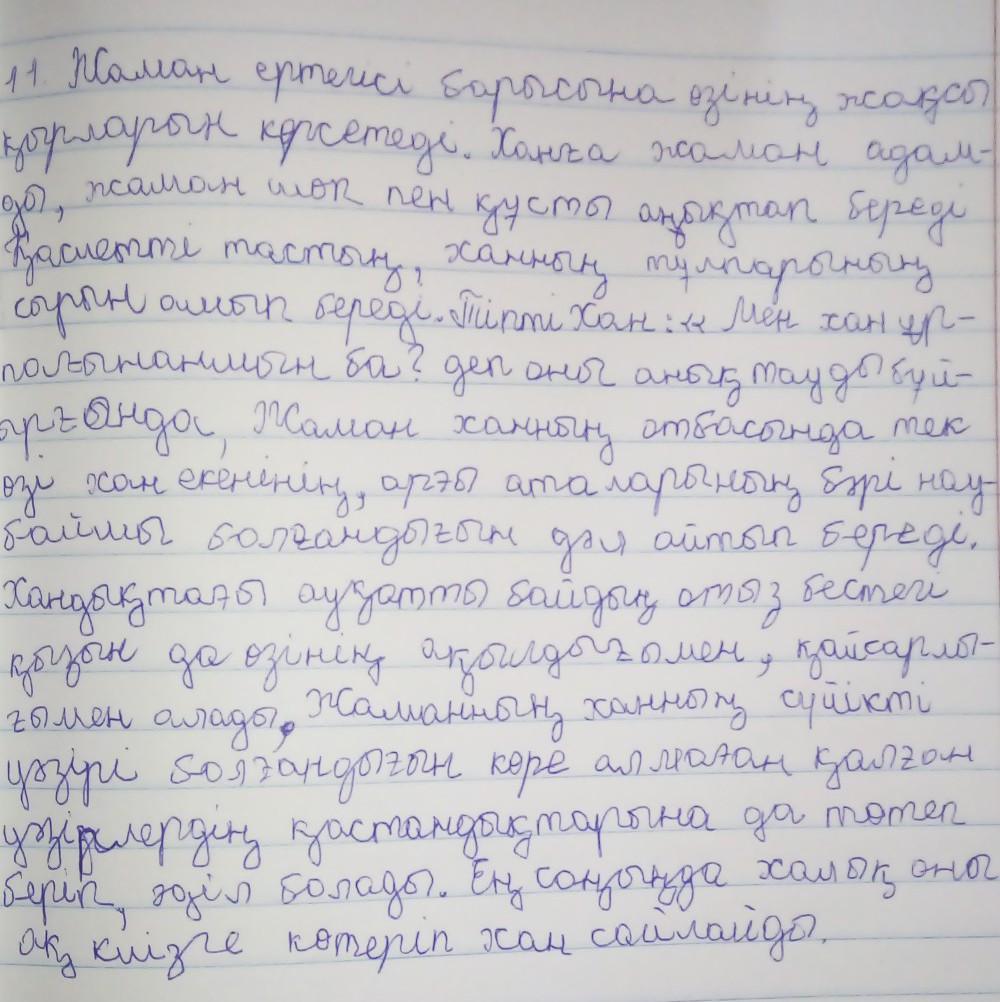 11. Жаман ертегісі барысына өзінің жақсы
қырларын көрсетеді. Ханға жаман адам-
ды, жаман шөп пен құсты аңықтап береді
Қасиетті тастың, ханның тұлпарының
сырын ашып береді. Тіпті Хан: «Мен хан ұр-
пағынанмын ба? деп оны анықтауды бұй-
ырғанда, Жаман ханның отбасында тек
өзі хан екенінің, арғы аталарының бәрі нау-
байшы болғандығын дәл айтып береді.
Хандықтағы ауқатты байдың отыз бестегі
қызын да өзінің ақылдығымен, қайсарлы-
ғымен алады. Жаманның ханның сүйікті
уәзірі болғандығын көре алмаған қалған
уәзірлердің қастандықтарына да төтеп
беріп, әділ болады. Ең соңыңда халық оны
ақ киізге көтеріп хан сайлайды.